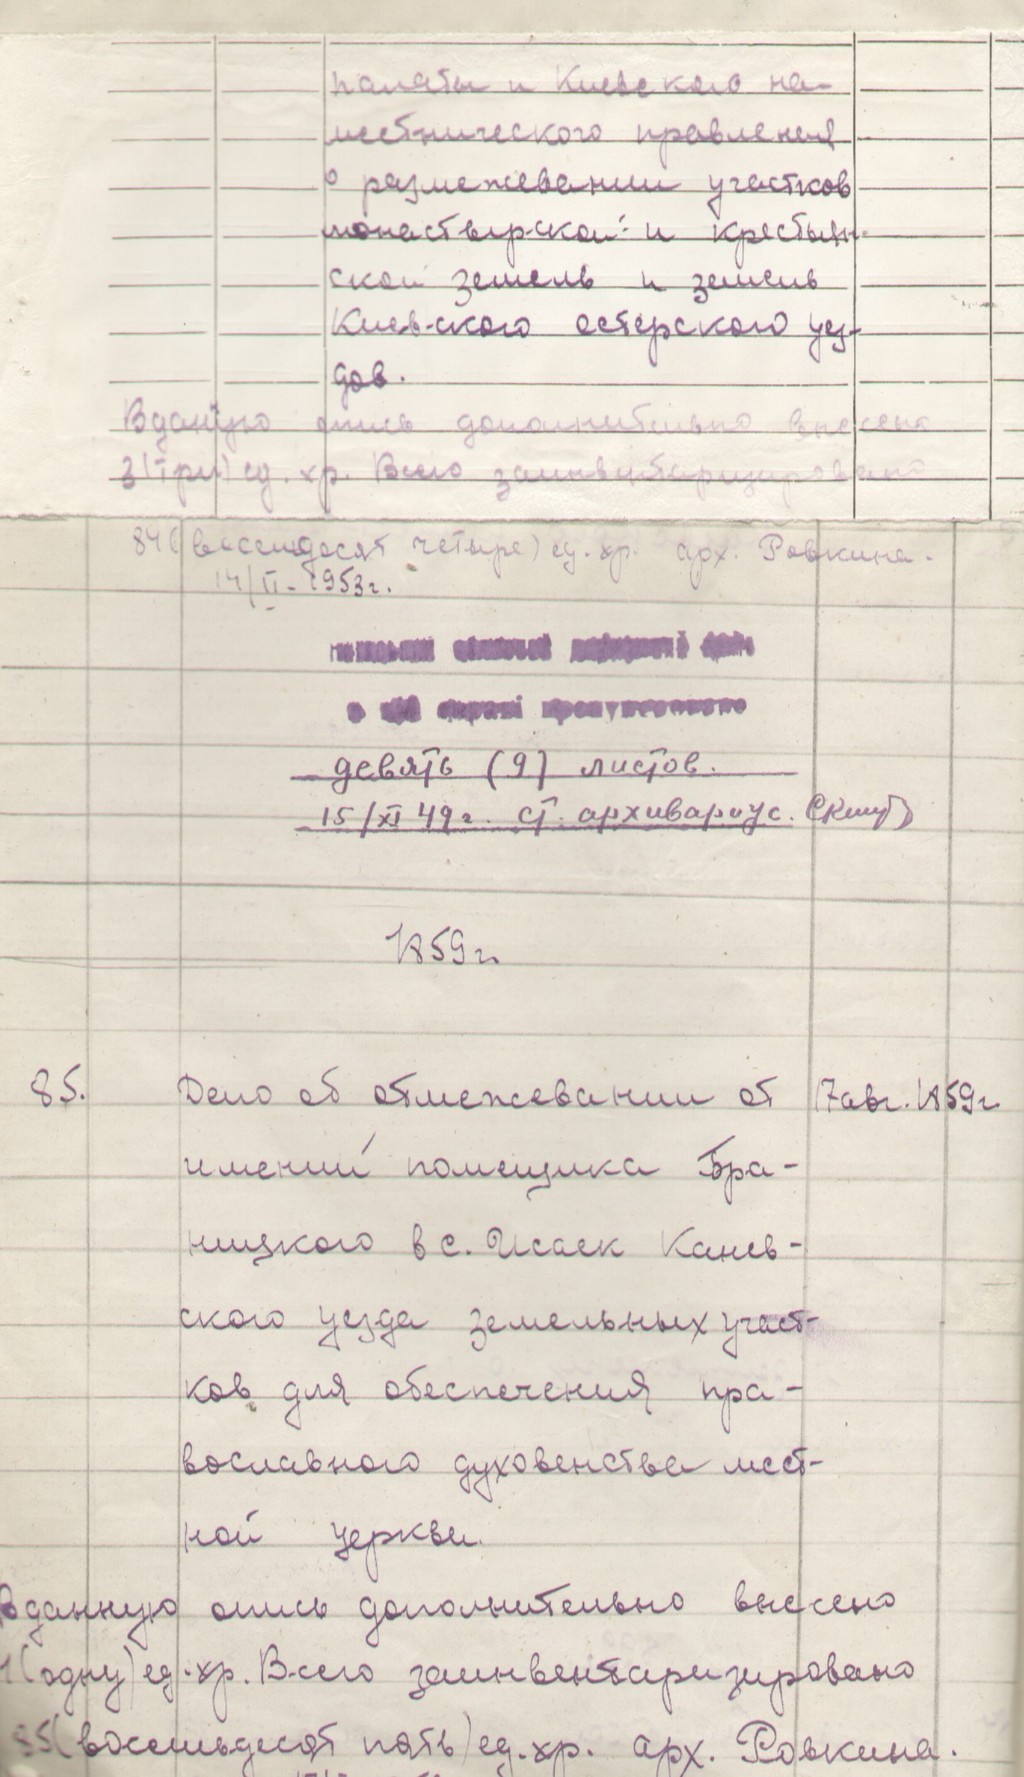 палаты и Киевского на-
местнического правления
о размежевании участков
монастырской и крестьян-
ской земель и земель
Киевского остерского уез-
дов.
В данную опись дополнительно внесено
3 (три) ед. хр. Всего заинвентаризировано
84 (восемдесят четыре) ед. хр. арх. Ровкина.
14/II-1953 г.
в цій справі пронумеровано
девять (9) листов.
15/XI 49 г. ст. архивариус.
1859 г.
85. Дело об отмежевании от 17 авг. 1859 г
имений помещика Бра-
ницкого в с. Исаек Канев-
ского уезда земельных участ-
ков для обеспечения пра-
вославного духовенства мест-
ной церкви.
В данную опись дополнительно внесено
1 (одну) ед. хр. Всего заинвентаризировано
85 (восемьдесят пять) ед. хр. арх. Ровкина.